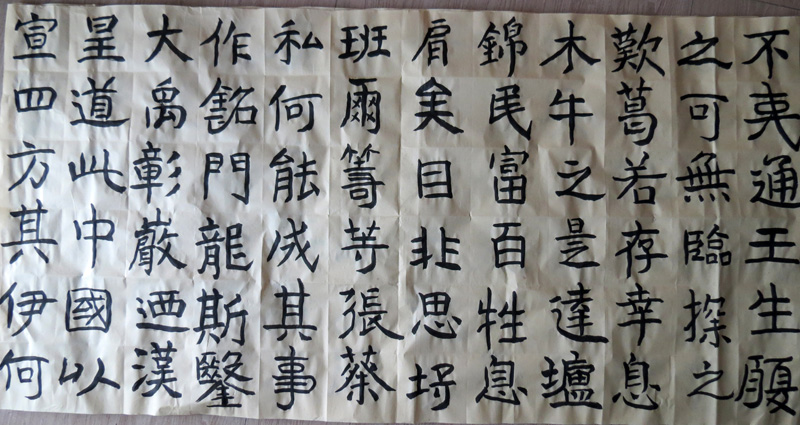 不夷通王生願
之可無臨探之
歎葛若存幸息
木牛之是達壚
錦民富百牲息
肩矣目非思埒
班爾籌等張蔡
私何能成其事
作銘門龍斯鑿
大禹彰嚴迺漢
呈道此中國以
宣四方其伊何